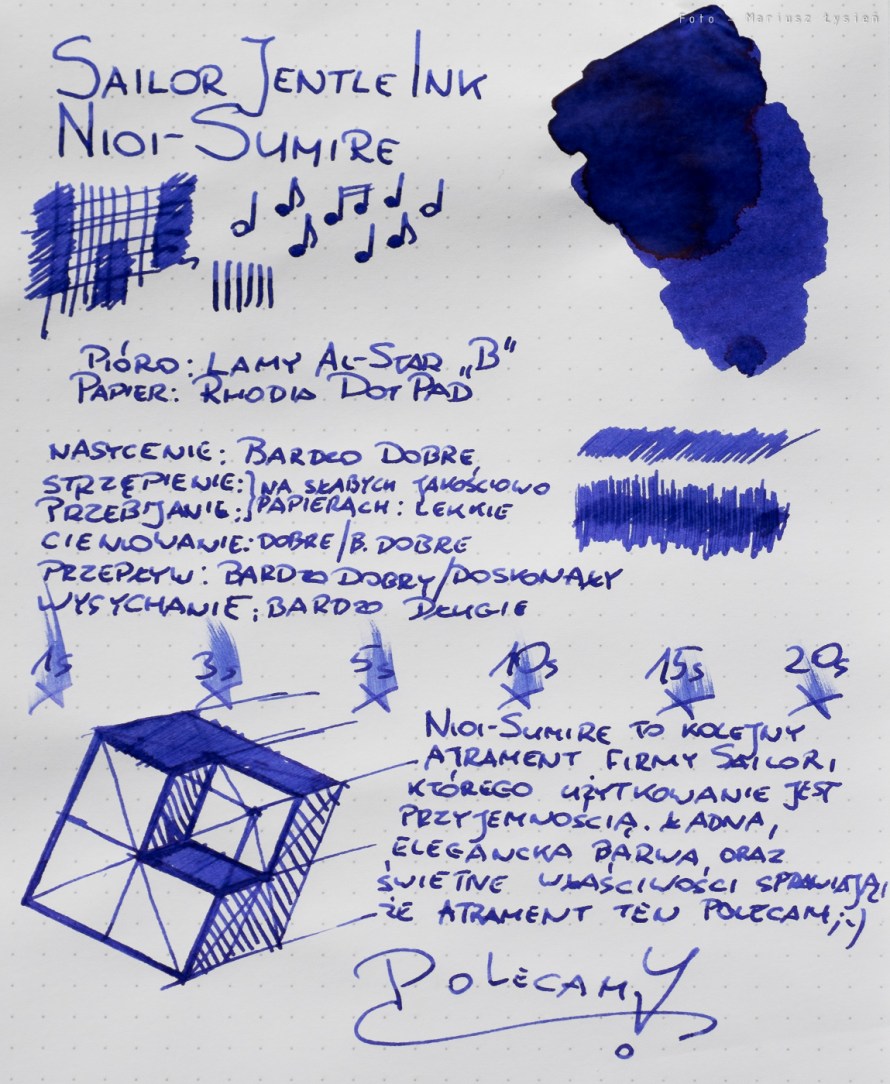 Foto - Mariusz Łysień
SAILOR JENTLE INK
NIOI-SUMIRE
PIÓRO: LAMY AL-STAR „B”
PAPIER: RHODIA DOT PAD
NASYCENIE: BARDZO DOBRE
STRZĘPIENIE:} NA SŁABYCH JAKOŚCIOWO
PRZEBIJANIE:} PAPIERACH: LEKKIE
CIENIOWANIE: DOBRE/B. DOBRE
PRZEPŁYW: BARDZO DOBRY/DOSKONAŁY
WYSYCHANIE: BARDZO DŁUGIE
1s 3s 5s 10s 15s 20s
NIOI-SUMIRE TO KOLEJNY
ATRAMENT FIRMY SAILOR,
KTÓREGO UŻYTKOWANIE JEST
PRZYJEMNOŚCIĄ. ŁADNA,
ELEGANCKA BARWA ORAZ
ŚWIETNE WŁAŚCIWOŚCI SPRAWIAJĄ,
ŻE ATRAMENT TEN POLECAM ;-)
POLECAMY